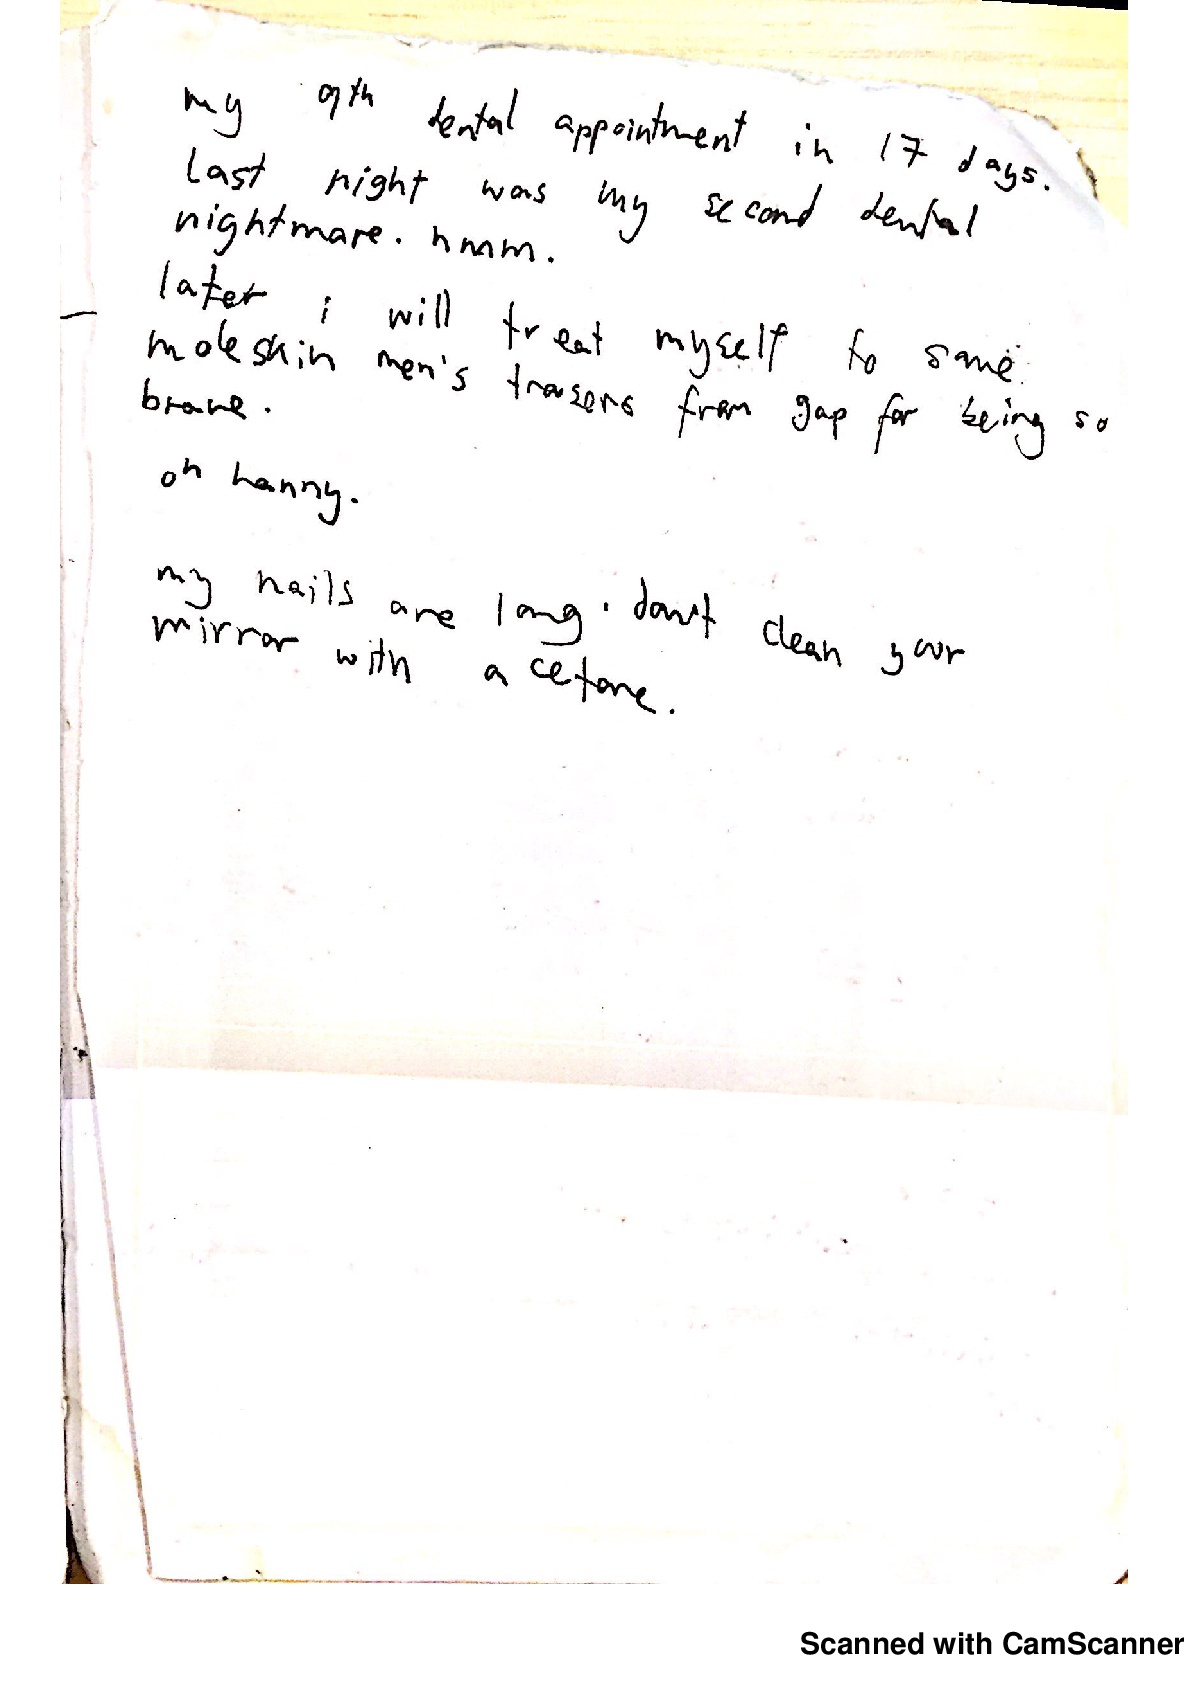 my 9th dental appointment in 17 days.
last night was my second dental
nightmare. hmm.
later i will treat myself to some
moleskin men's trousers from gap for being so
brave.
oh hanny.
my nails are long. don't clean your
mirror with acetone.
Scanned with CamScanner